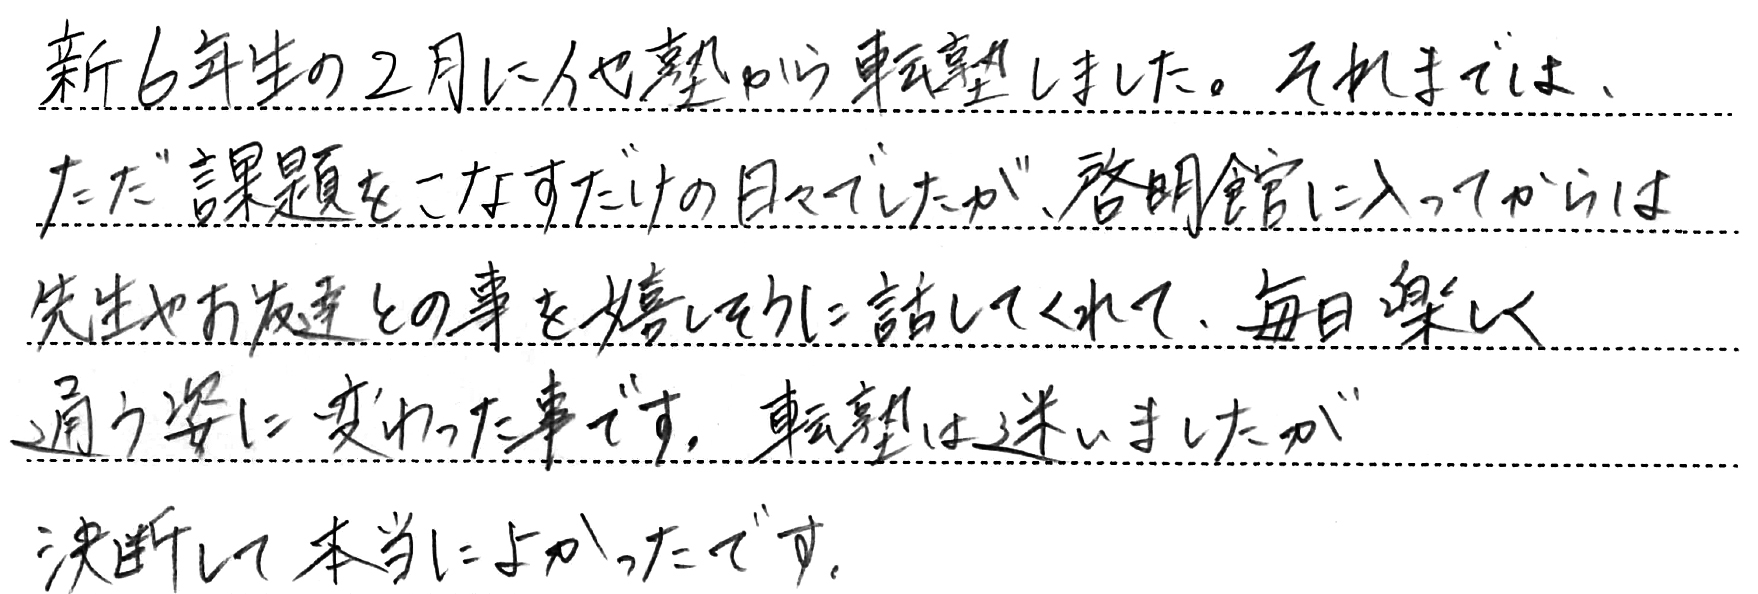 新6年生の2月に他塾から転塾しました。それまでは、
ただ課題をこなすだけの日々でしたが、啓明館に入ってからは
先生やお友達との事を嬉しそうに話してくれて、毎日楽しく
通う姿に変わった事です。転塾は迷いましたが
決断して本当によかったです。